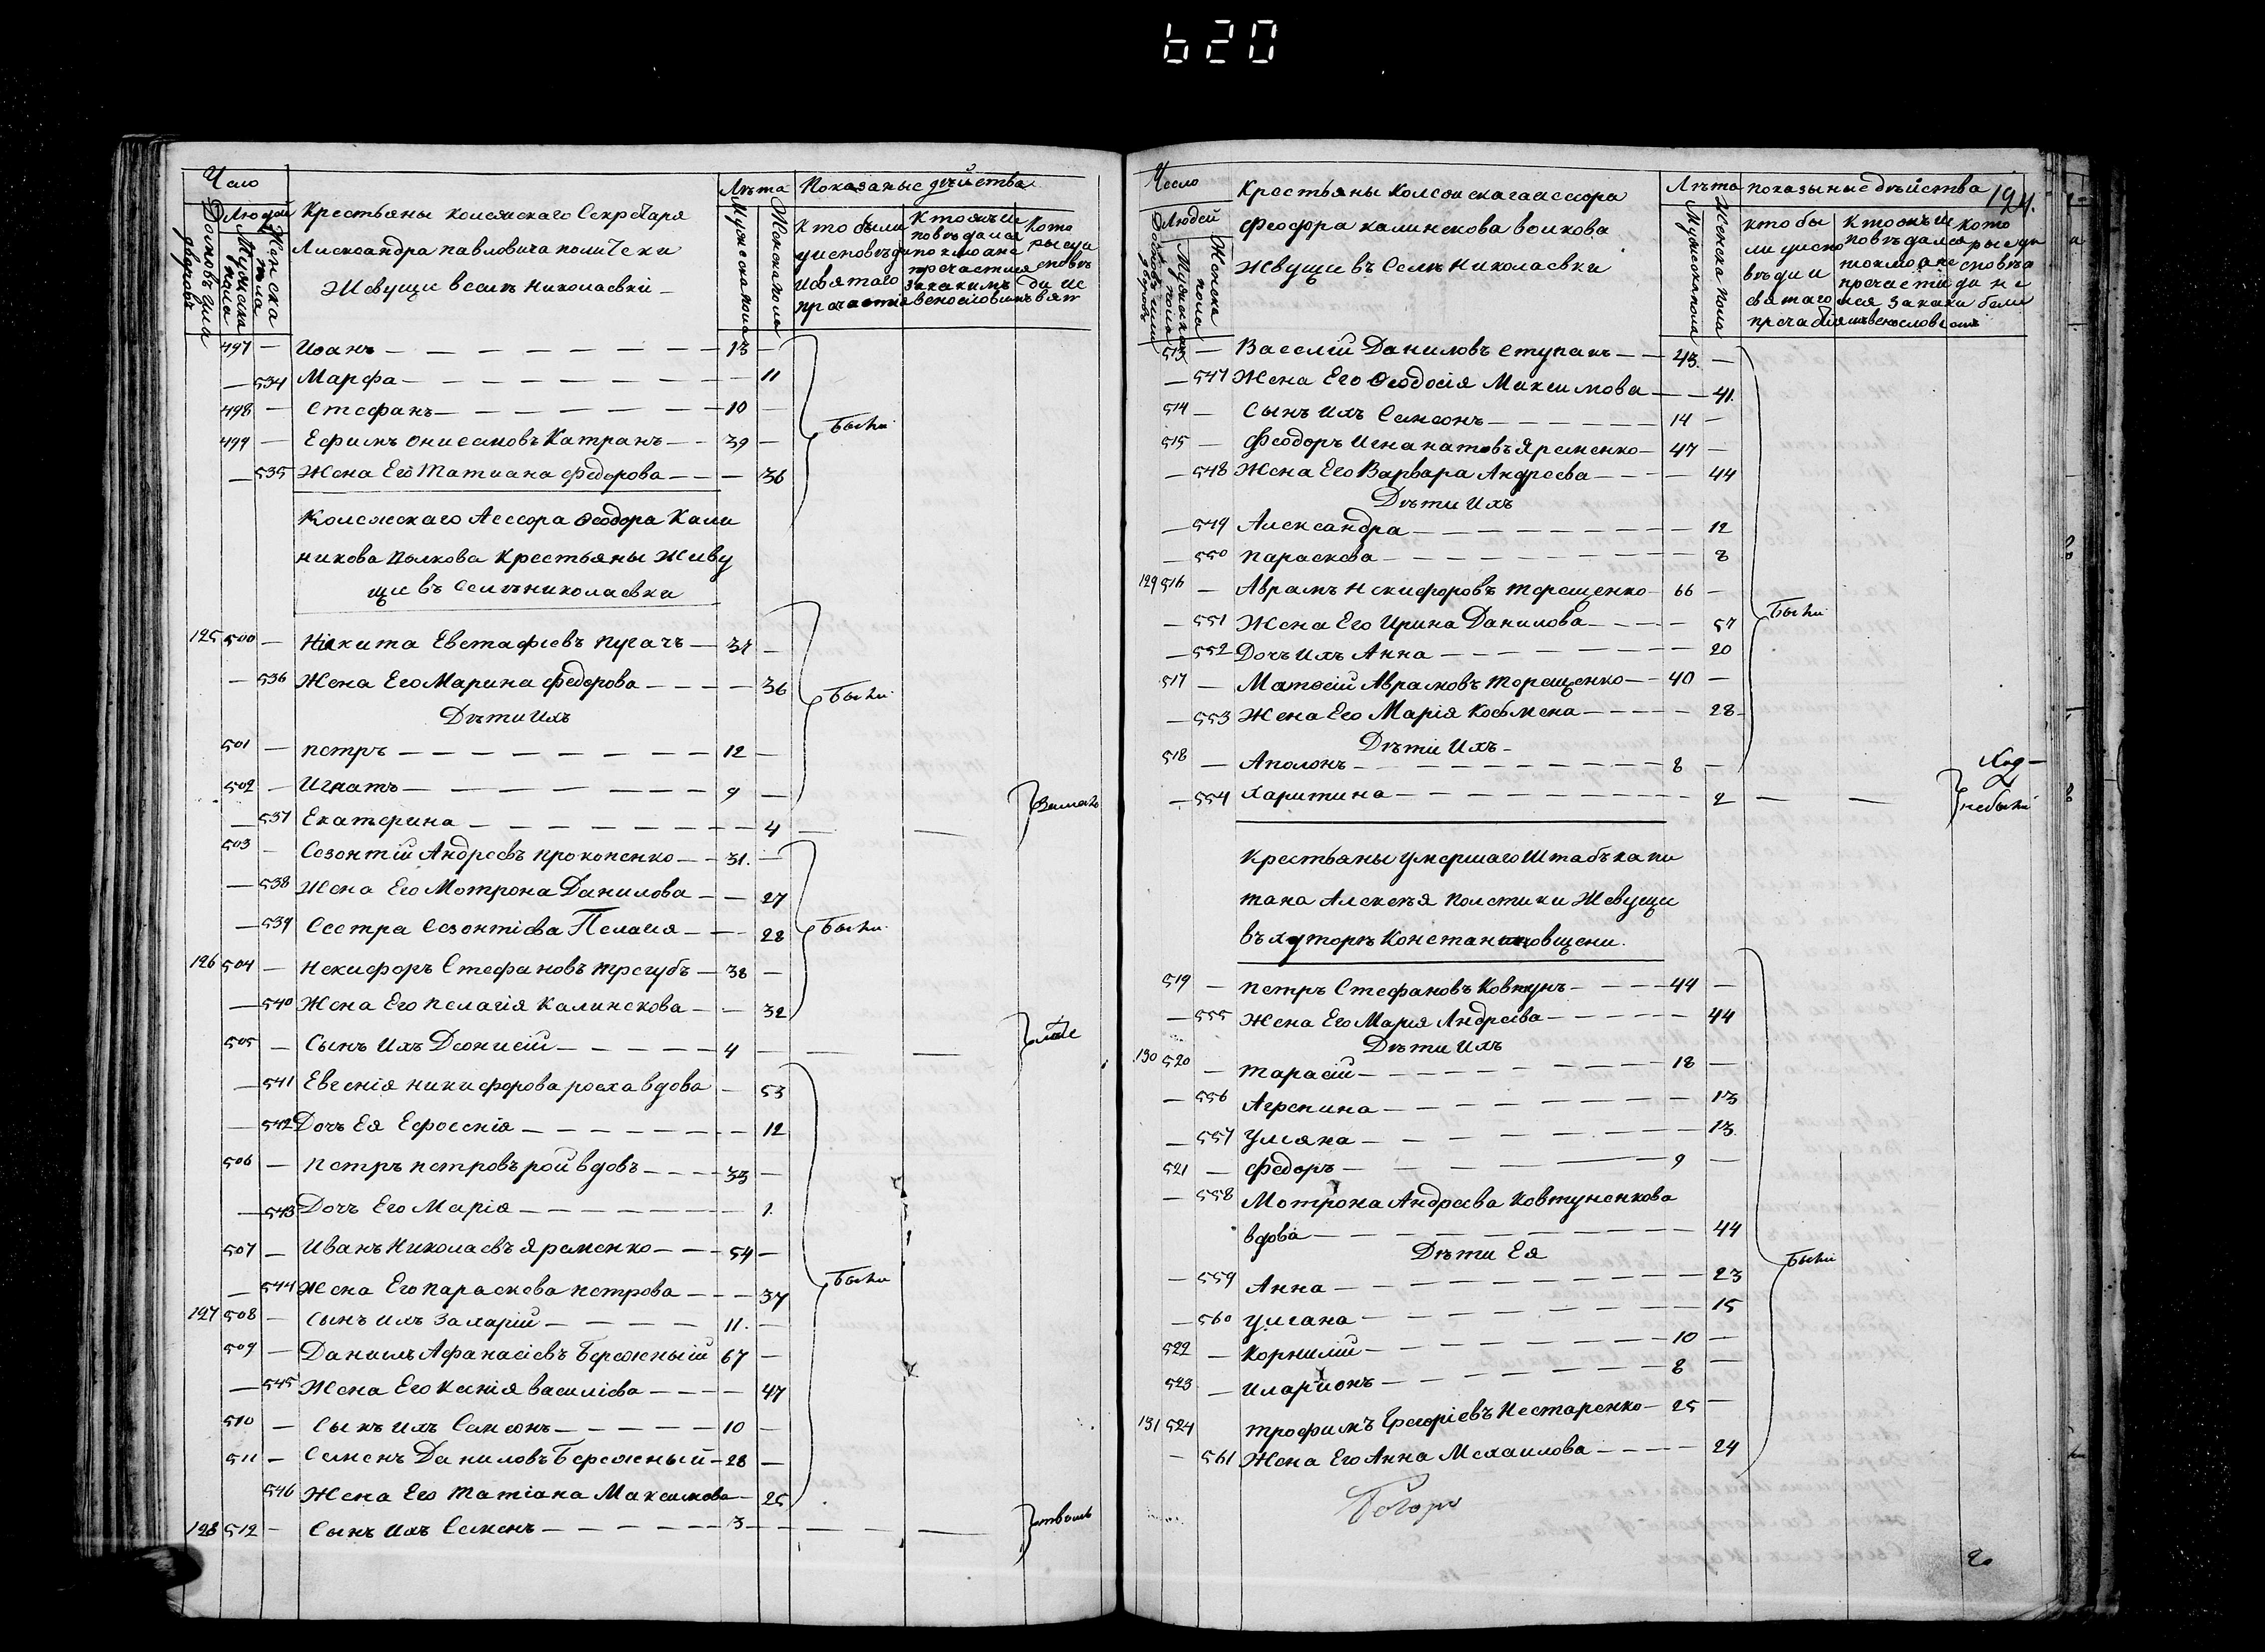 620
Число
Людей
Домовъ или дворовъ
Мужеска пола
Женска пола
Крестьяны колежскаго Секретаря
Александра павловича политеки
Жевущи веселъ николаевки
Лѣта
Мужеска пола
Женска пола
Показаные дѣйства
Кто были
497 — Иоанъ — 13 —
— 534 Марфа — 11
498 — Стефанъ — 10 —
499 — Ефимъ Онисимовъ Катранъ — 39 —
— 535 Жена Его Татиана Федорова — 36
Были
Колежскаго Ассесора Ѳеодора Кали
никова Волкова Крестьяны Живу
щи въ Селѣ николаевки
125 500 — Никита Евстафиевъ Пугачъ — 37 —
— 536 Жена Его Марина Федорова — 36
Дѣти Ихъ
501 — петръ — 12 —
502 — Игнатъ — 9 —
Были
— 537 Екатерина — 4 — —
503 — Созонтий Андреевъ прокопенко — 31. —
— 538 Жена Его Мотрона Данилова — 27
— 539 Сестра Созонтіева Пелагия — 28
126 504 — Некифоръ Стефановъ трегубъ — 38 —
— 540 Жена Его пелагія Калинекова — 32
Были
505 — Сынъ Ихъ Деонисий — 4 — — —
— 541 Евгенія никифорова роева вдова — 53
— 542 Дочь Ея Ефросенія — 12
506 — петръ петровъ рой вдовъ — 33 —
— 543 Дочь Его Марія — 1.
507 — Иванъ Николаевъ Яременко — 54 —
— 544 Жена Его параскева петрова — 37
127 508 — Сынъ ихъ Захарий — 11. —
509 — Данилъ Афанасіевъ Бережный 67 —
— 545 Жена Его Ксенія василіева — 47
510 — Сынъ ихъ Самсонъ — 10 —
511 — Семенъ Даниловъ Бережный — 28 —
546 Жена Его Татіана Максимова — 25
Были
128 512 — Сынъ ихъ Семенъ — 3 — — —
Число
Людей
Домовъ или дворовъ
Мужеска пола
Женска пола
Крестьяны Колежскагаассесора
Феофра калинекова волкова
Жевущи въ Селѣ Николаевки
Лѣта
Мужеска пола
Женска пола
показаные дѣйства
194.
кто бы
513 — Василий Даниловъ Ступакъ — 43. —
— 547 Жена Его Ѳеодосія Максимова — 41.
514 — Сынъ ихъ Самсонъ — 14 —
515 — Феодоръ Игнатовъ Яременко — 47 —
— 548 Жена Его Варвара Андреева — 44
Дѣти Ихъ
— 549 Александра — 12
— 550 параскева — 8
129 516 — Аврамъ Некифоровъ терещенко — 66 —
— 551 Жена Его Ирина Данилова — 57
— 552 Дочь ихъ Анна — 20
517 — Матвей Аврамовъ терещенко — 40 —
— 553 Жена Его Марія Козьмена — 28
Дѣти Ихъ
518 — Аполонъ — 8 —
Были
— 554 Харитина — 2 — — небыли
Крестьяны умершаго Штабъ капи
тана Алексѣя Полетики Жевущи
въ хуторѣ Константиновщени.
519 — петръ Стефановъ Ковтунъ — 44 —
— 555 Жена Его Марія Андреева — 44
Дѣти ихъ
130 520 — тарасий — 18 —
— 556 Агрепина — 13
— 557 Уляна — 13.
521 — Федоръ — 9 —
— 558 Мотрона Андреева Ковтуненкова
вдова — 44
Дѣти Ея
— 559 Анна — 23
— 560 Улиана — 15
522 — Корнилий — 10 —
523 — Иларионъ — 8 —
131 524 трофимъ Григоріевъ Нестаренко — 25 —
— 561 Жена Его Анна Мехаилова — 24
Были